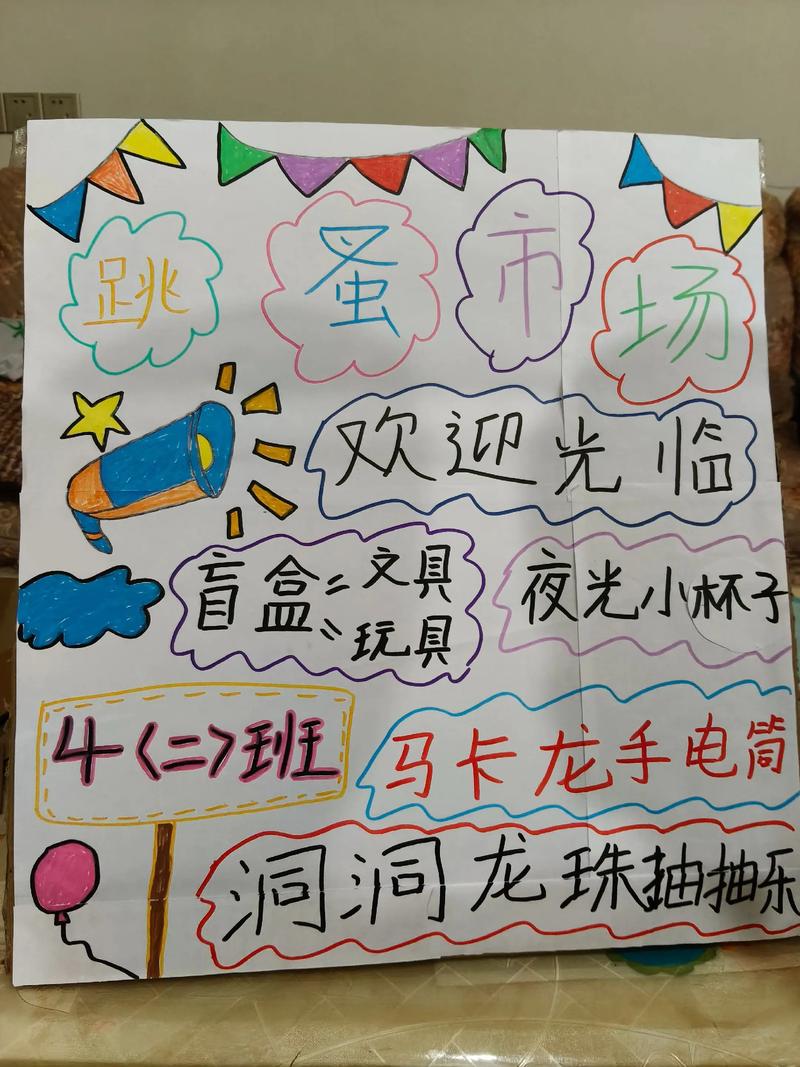 跳蚤市场
欢迎光临
盲盒：文具
玩具
夜光小杯子
4〈二〉班
马卡龙手电筒
洞洞龙珠抽抽乐